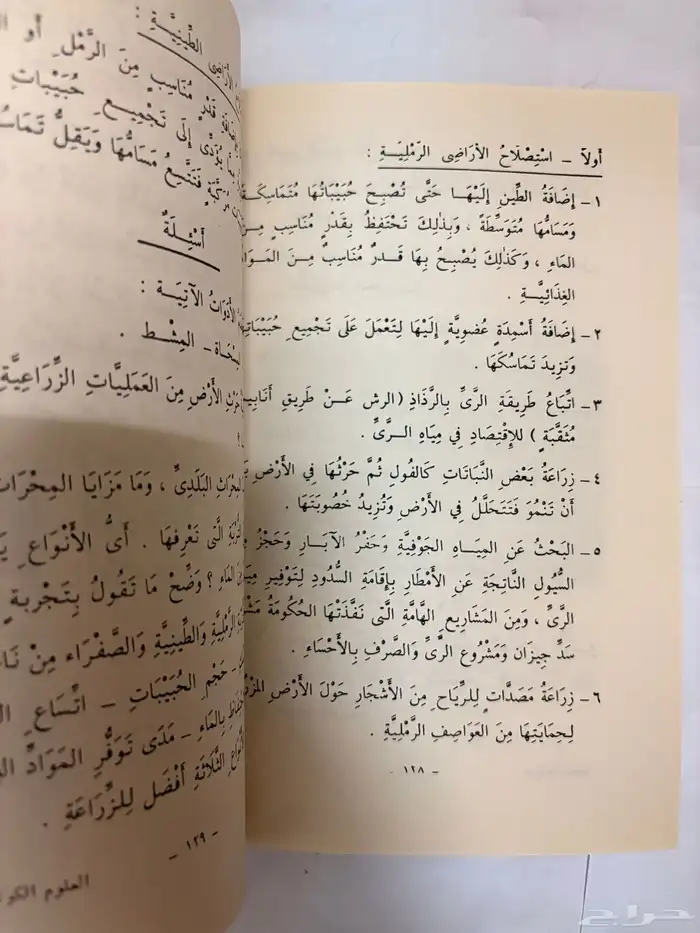 أولاً – اسْتِصْلَاحُ الأرَاضِى الرَّمْلِيَّـةِ :
١ – إضَافَةُ الطِّينِ إلَيْهَـا حَتَّى تُصْبِحَ حُبَيْبَاتُهَا مُتَمَاسِكَـةً
وَمَسَامُّهَا مُتَوَسِّطَةً ، وَبِذٰلِكَ تَحْتَفِظُ بِقَدْرٍ مُنَاسِبٍ مِـنَ
المَاءِ ، وَكَذٰلِكَ يُصْبِحُ بِهَا قَـدرٌ مُنَاسِبٌ مِـنَ المَـوَادِّ
الغِذَائِيَّـةِ .
٢ – إضَافَةُ أسْمِدَةٍ عُضوِيَّةٍ إلَيْهَا لِتَعْمَلَ عَلَى تَجْمِيعِ حُبَيْبَاتِهَا
وَتزِيدَ تَمَاسُكَهَا .
٣ – اتِّبَاعُ طَرِيقَةِ الرَّىِّ بِالرَّذَاذِ ( الرش عَـنْ طَرِيقِ أنَابِيبَ
مُثَقَّبَةٍ ) للإقْتِصَادِ فِي مِيَاهِ الـرَّىِّ .
٤ – زِرَاعَةُ بَعْضِ النَّبَاتَاتِ كَالفُولِ ثُمَّ حَرْثُهَا فِي الأرْضِ
أنْ تَنْمُوَ فَتَتَحَلَّلُ فِي الأرْضِ وَتُزِيدُ خُصُوبَتَهَا .
٥ – البَحْثُ عَنِ المِيَـاهِ الجَوْفِيَّةِ وَحَفْرُ الآبَـارِ وَحَجْزُ
السُّيُولِ النَّاتِجَةِ عَنِ الأمْطَارِ بِإقَامَةِ السُّدُودِ لِتَوْفِيرِ
الرَّىِّ ، وَمِنَ المَشَارِيعِ الهَامَّةِ الَّتى نَفَّذَتْهَا الحُكُومَةُ
سَدِّ جِيزَان وَمَشْرُوعِ الرَّىِّ وَالصَّرْفِ بِالأحْسَاءِ .
٦ – زِرَاعَةُ مَصَدَّاتٍ لِلرِّيَاحِ مِنَ الأشْجَارِ حَوْلَ الأرْضِ
لِحِمَايَتِهَا مِنَ العَوَاصِفِ الرَّمْلِيَّةِ .
– ١٢٨ –
الأرَاضِى الطِّينِيَّةِ :
قَدْرٍ مُنَاسِبٍ مِنَ الرَّمْلِ أو
يُؤَدِّى إلَى تَجْمِيـعِ حُبَيْبَاتِ
فَتَتَّسِعُ مَسَامُّهَا وَيَقِلُّ
أسْئِلَةٌ
الأدَوَاتُ الآتِيَـة :
المِسْحَاة – المِشْـط .
حَرْثِ الأرْضِ مِنَ العَمَلِيَّاتِ الزِّرَاعِيَّةِ
المِحْرَاثِ البَلَدِىِّ ، وَمَا مَزَايَا المِحْرَاثِ
الَّتى تَعْرِفهَا . أىُّ الأنْوَاعِ
المَاءِ ؟ وَضِّحْ مَا تَقُولُ بِتَجْرِبةٍ
الرَّمْلِيَّةِ وَالطِّينِيَّةِ وَالصَّفْرَاء مِنْ
– حَجْمِ الحُبَيْبَاتِ – اتِّسَاعِ
بِالمَاءِ – مَدَى تَوَفُّرِ المَوَادِّ
الأنْوَاعِ الثَّلَاثَةِ أفْضَل لِلزِّرَاعَةِ .
– ١٢٩ –
العلوم
حراج